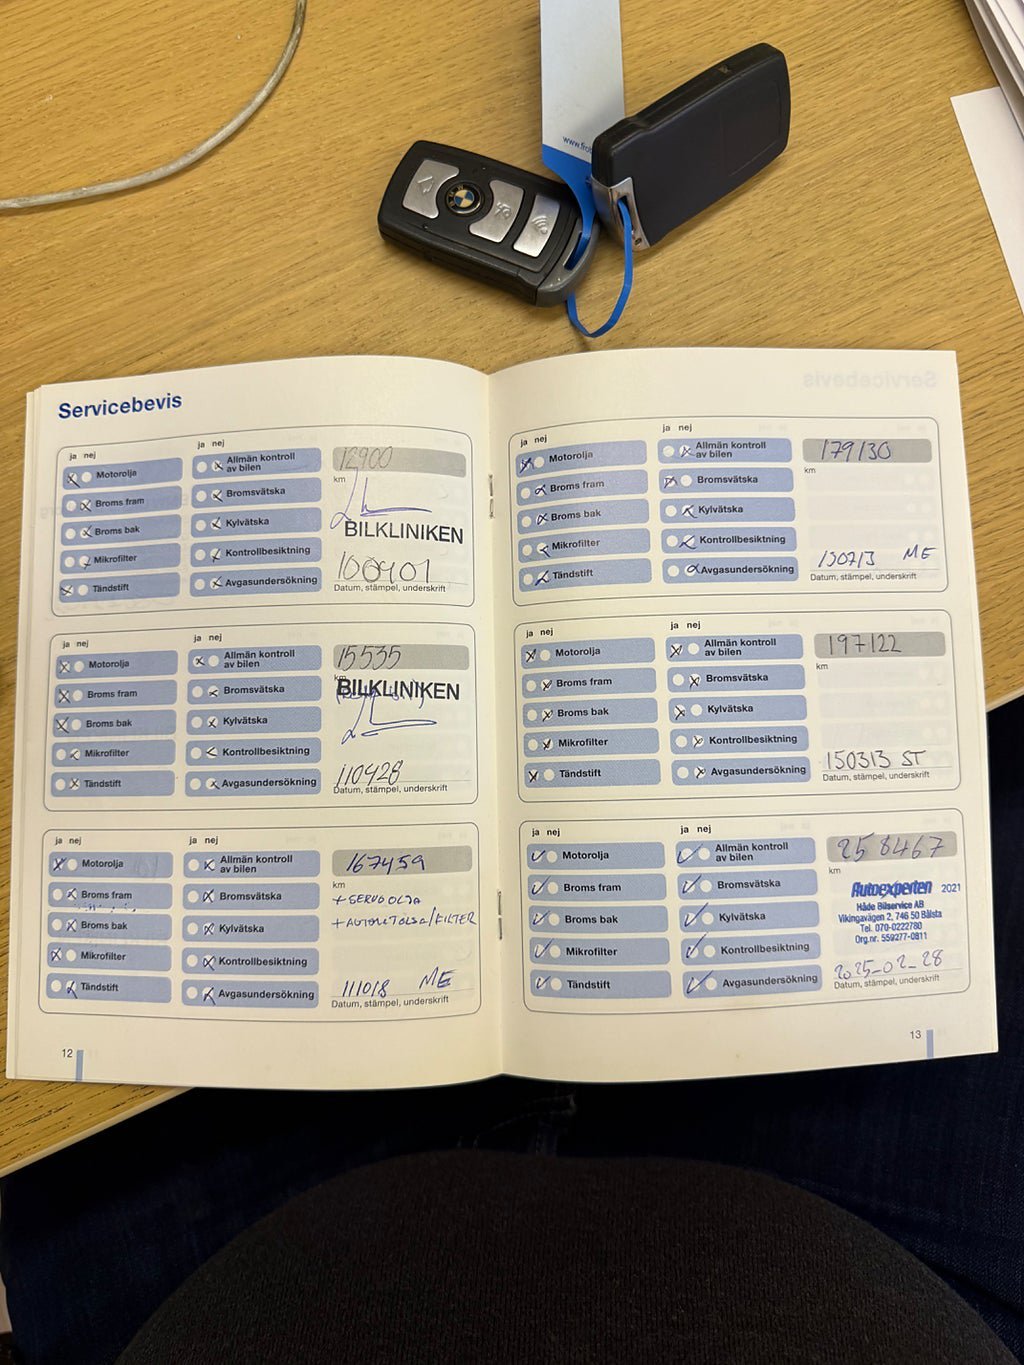 www.firob
Servicebevis
ja nej
Motorolja
Broms fram
Broms bak
Mikrofilter
Tändstift
ja nej
Allmän kontroll
av bilen
Bromsvätska
Kylvätska
Kontrollbesiktning
Avgasundersökning
12900
km
BILKLINIKEN
100401
Datum, stämpel, underskrift
ja nej
Motorolja
Broms fram
Broms bak
Mikrofilter
Tändstift
ja nej
Allmän kontroll
av bilen
Bromsvätska
Kylvätska
Kontrollbesiktning
Avgasundersökning
15535
km
BILKLINIKEN
110428
Datum, stämpel, underskrift
ja nej
Motorolja
Broms fram
Broms bak
Mikrofilter
Tändstift
ja nej
Allmän kontroll
av bilen
Bromsvätska
Kylvätska
Kontrollbesiktning
Avgasundersökning
167459
km
+ SERVO OLJA
+ AUTOMATOLJA/FILTER
111018 ME
Datum, stämpel, underskrift
12
ja nej
Motorolja
Broms fram
Broms bak
Mikrofilter
Tändstift
ja nej
Allmän kontroll
av bilen
Bromsvätska
Kylvätska
Kontrollbesiktning
Avgasundersökning
179130
km
130713 ME
Datum, stämpel, underskrift
ja nej
Motorolja
Broms fram
Broms bak
Mikrofilter
Tändstift
ja nej
Allmän kontroll
av bilen
Bromsvätska
Kylvätska
Kontrollbesiktning
Avgasundersökning
197122
km
150313 ST
Datum, stämpel, underskrift
ja nej
Motorolja
Broms fram
Broms bak
Mikrofilter
Tändstift
ja nej
Allmän kontroll
av bilen
Bromsvätska
Kylvätska
Kontrollbesiktning
Avgasundersökning
258467
km
Autoexperten 2021
Håde Bilservice AB
Vikingavägen 2, 746 50 Bålsta
Tel. 070-0222780
Org.nr. 559277-0811
2025-02-28
Datum, stämpel, underskrift
13